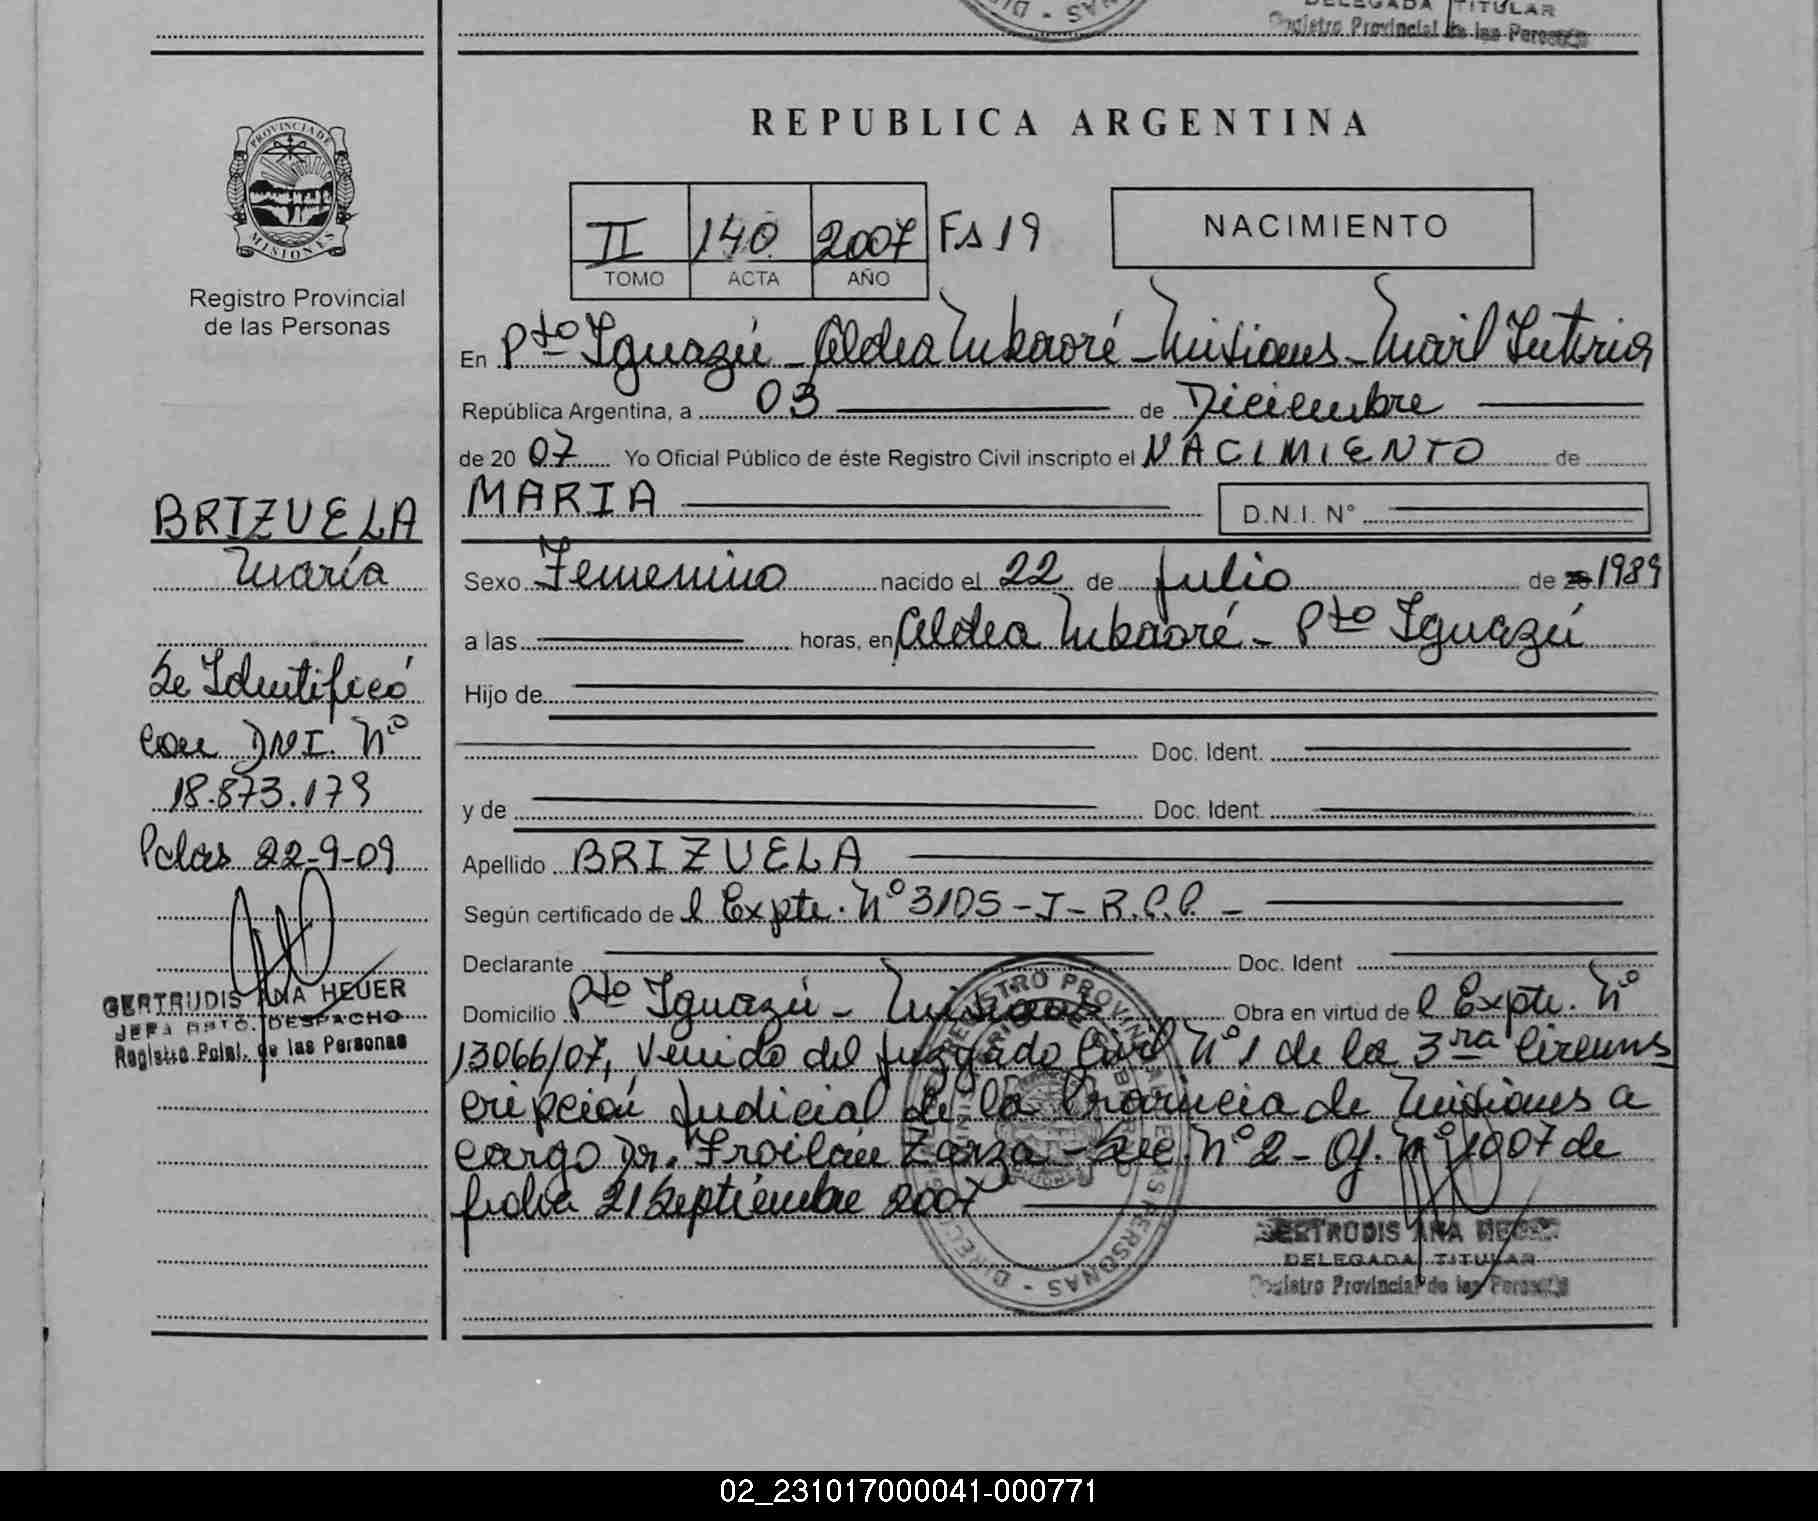 DELEGADA TITULAR
Registro Provincial de las Personas
PROVINCIA DE
MISIONES
Registro Provincial
de las Personas
BRIZUELA
María
Se Identificó
con DNI. Nº
18.873.179
Pdas 22-9-09
GERTRUDIS ANA HEUER
JEFA DPTO. DESPACHO
Registro Pcial. de las Personas
REPUBLICA ARGENTINA
II 140 2007 Fs 19
TOMO ACTA AÑO
NACIMIENTO
En Pto Iguazú - Aldea Mbaoré - Misiones - Movil Interior
República Argentina, a 03 de Diciembre
de 20 07 Yo Oficial Público de éste Registro Civil inscripto el NACIMIENTO de
MARIA D.N.I. Nº
Sexo Femenino nacido el 22 de Julio de 20 1989
a las horas, en Aldea Mbaoré - Pto Iguazú
Hijo de
Doc. Ident.
y de Doc. Ident.
Apellido BRIZUELA
Según certificado de l Expte. Nº 3105 - J - R.P.P. -
Declarante Doc. Ident
Domicilio Pto Iguazú - Misiones Obra en virtud de l Expte. Nº
13066/07, Venido del Juzgado Civil Nº 1 de la 3ra Circuns
cripción Judicial de la Provincia de Misiones a
cargo Dr. Froilán Zarza - Sec. Nº 2 - Of. Nº 1007 de
fecha 21 Septiembre 2007
GERTRUDIS ANA HEUER
DELEGADA TITULAR
Registro Provincial de las Personas
02_231017000041-000771